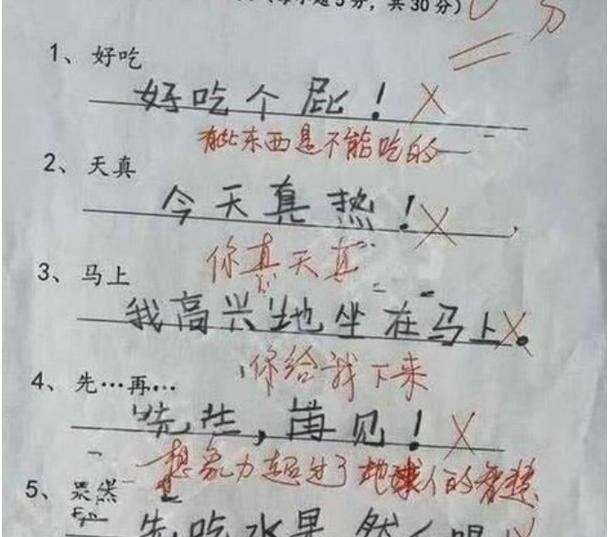 5分，共30分) 0分
1、好吃
好吃个屁！
有些东西是不能吃的
2、天真
今天真热！
你真天真
3、马上
我高兴地坐在马上。
你给我下来
4、先…再…
先生，再见！
想象力超过了地球人的智慧
5、果然
先吃水果，然